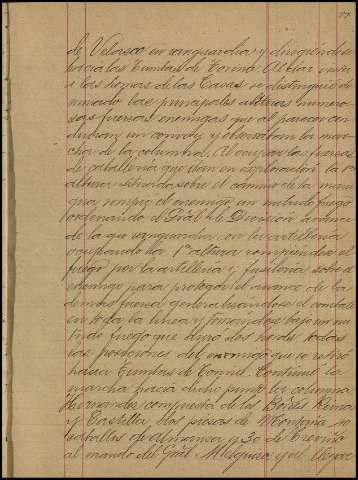 de Velasco en vanguardia, y dirigiéndose
hacia las Tunitas de Torná. Al dar vista
a las lomas de las Casas se distinguió do-
minando las principales alturas numero-
sas fuerzas enemigas que al parecer con-
ducian un convoy y observaban la mar-
cha de la columna. Al ocupar las fuerzas
de caballeria que iban en exploracion la 1ª
altura situada sobre el camino de la
rompió el enemigo un nutrido fuego
ordenando el Gral de la Division avance
de la vanguardia con la artilleria
ocupando la 1ª altura rompiendo el
fuego por la artilleria y fusileria sobre el
enemigo para proteger el avance de las
demás fuerzas generalizandose el combate
en toda la linea y tomandose bajo un nu-
trido fuego que duró dos horas todas
las posiciones del enemigo que se retiró
hacia Tunitas de Torná. Continuó la
marcha hacia dicho punto la columna
Hernandez compuesta de los Bones Reina
y Castilla, dos piezas de Montaña,
caballos de Numancia y 30 de Treviño
al mando del Gral y el